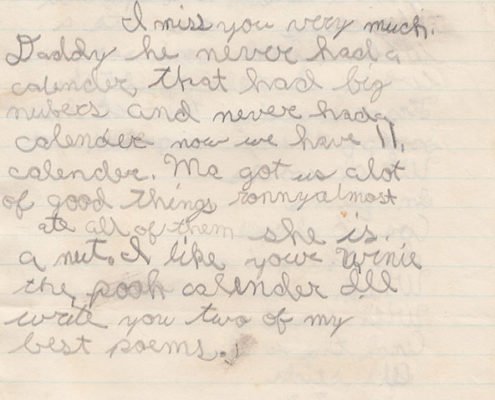 I miss you very much.
Daddy he never had a
calender, that had big
nubers and never had a
calender now we have 11.
calender. Ma got us alot
of good things ronny almost
ate all of them she is
a nut. I like your winie
the pooh calender I'll
write you two of my
best poems.